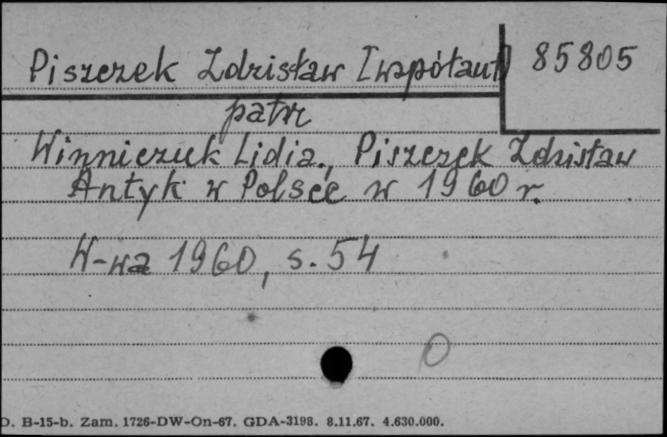 Piszczek Zdzisław [współaut]
85805
patrz
Winniczuk Lidia, Piszczek Zdzisław
Antyk w Polsce w 1960 r.
W-wa 1960, s. 54
O
O. B-15-b. Zam. 1726-DW-On-67. GDA-3198. 8.11.67. 4.630.000.